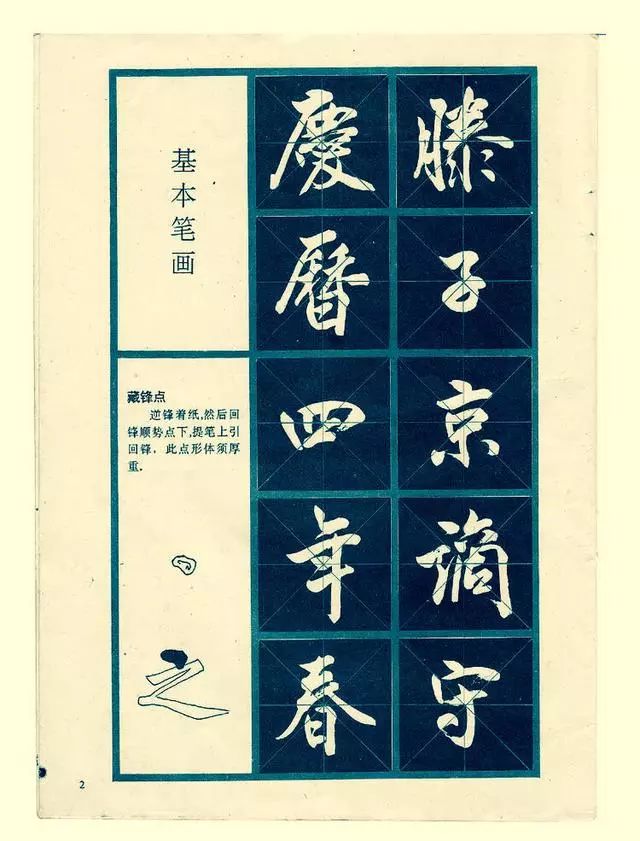 基本笔画
藏锋点
逆锋着纸,然后回
锋顺势点下,提笔上引
回锋，此点形体须厚
重.
之
慶曆四年春
滕子京謫守
2